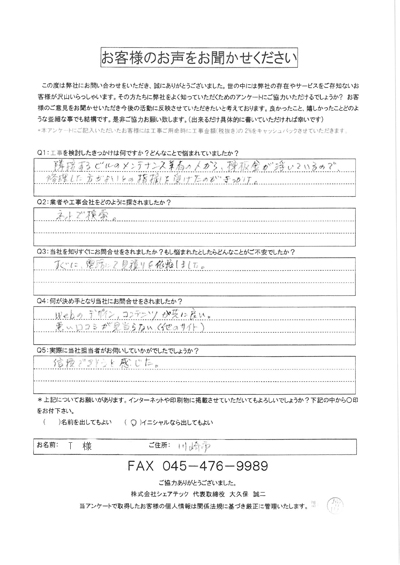 お客様のお声をお聞かせください
この度は弊社にお問い合わせをいただき、誠にありがとうございました。世の中には弊社の存在やサービスをご存知ないお
客様が沢山いらっしゃいます。その方たちに弊社をよく知っていただくためのアンケートにご協力いただけるでしょうか? お客
様のご意見をお聞かせいただき今後の活動に反映させていただきたいと考えております。良かったこと、嬉しかったことどのよ
うな些細な事でも結構です。是非ご協力お願い致します。(出来るだけ具体的に書いていただければ幸いです)
*本アンケートにご記入いただいたお客様には工事ご契約時に工事金額(税抜き)の2%をキャッシュバックさせていただきます。
Q1:工事を検討したきっかけは何ですか?どんなことで悩まれていましたか?
隣接するビルのメンテナンス業者の方から、棟板金が浮いているので、
修理した方がよいとの指摘を受けたのがきっかけ。
Q2:業者や工事会社をどのように探されましたか?
ネットで検索。
Q3:当社を知りすぐにお問合せをされましたか?もし悩まれたとしたらどんなことがご不安でしたか?
すぐに、電話にて見積りを依頼しました。
Q4:何が決め手となり当社にお問合せをされましたか?
Webのデザイン、コンテンツ共に良い。
悪い口コミが見当らない(他のサイト)
Q5:実際に当社担当者がお伺いしていかがでしたでしょうか?
信頼できそうと感じた。
*上記についてお願いがあります。インターネットや印刷物に掲載させていただいてもよろしいでしょうか?下記の中から〇印
をお付下さい。
( )名前を出してもよい (〇)イニシャルなら出してもよい
お名前: T 様 ご住所: 川崎市
FAX 045-476-9989
ご協力ありがとうございました。
株式会社シェアテック 代表取締役 大久保 誠二
当アンケートで取得したお客様の個人情報は関係法規に基づき厳正に管理いたします。